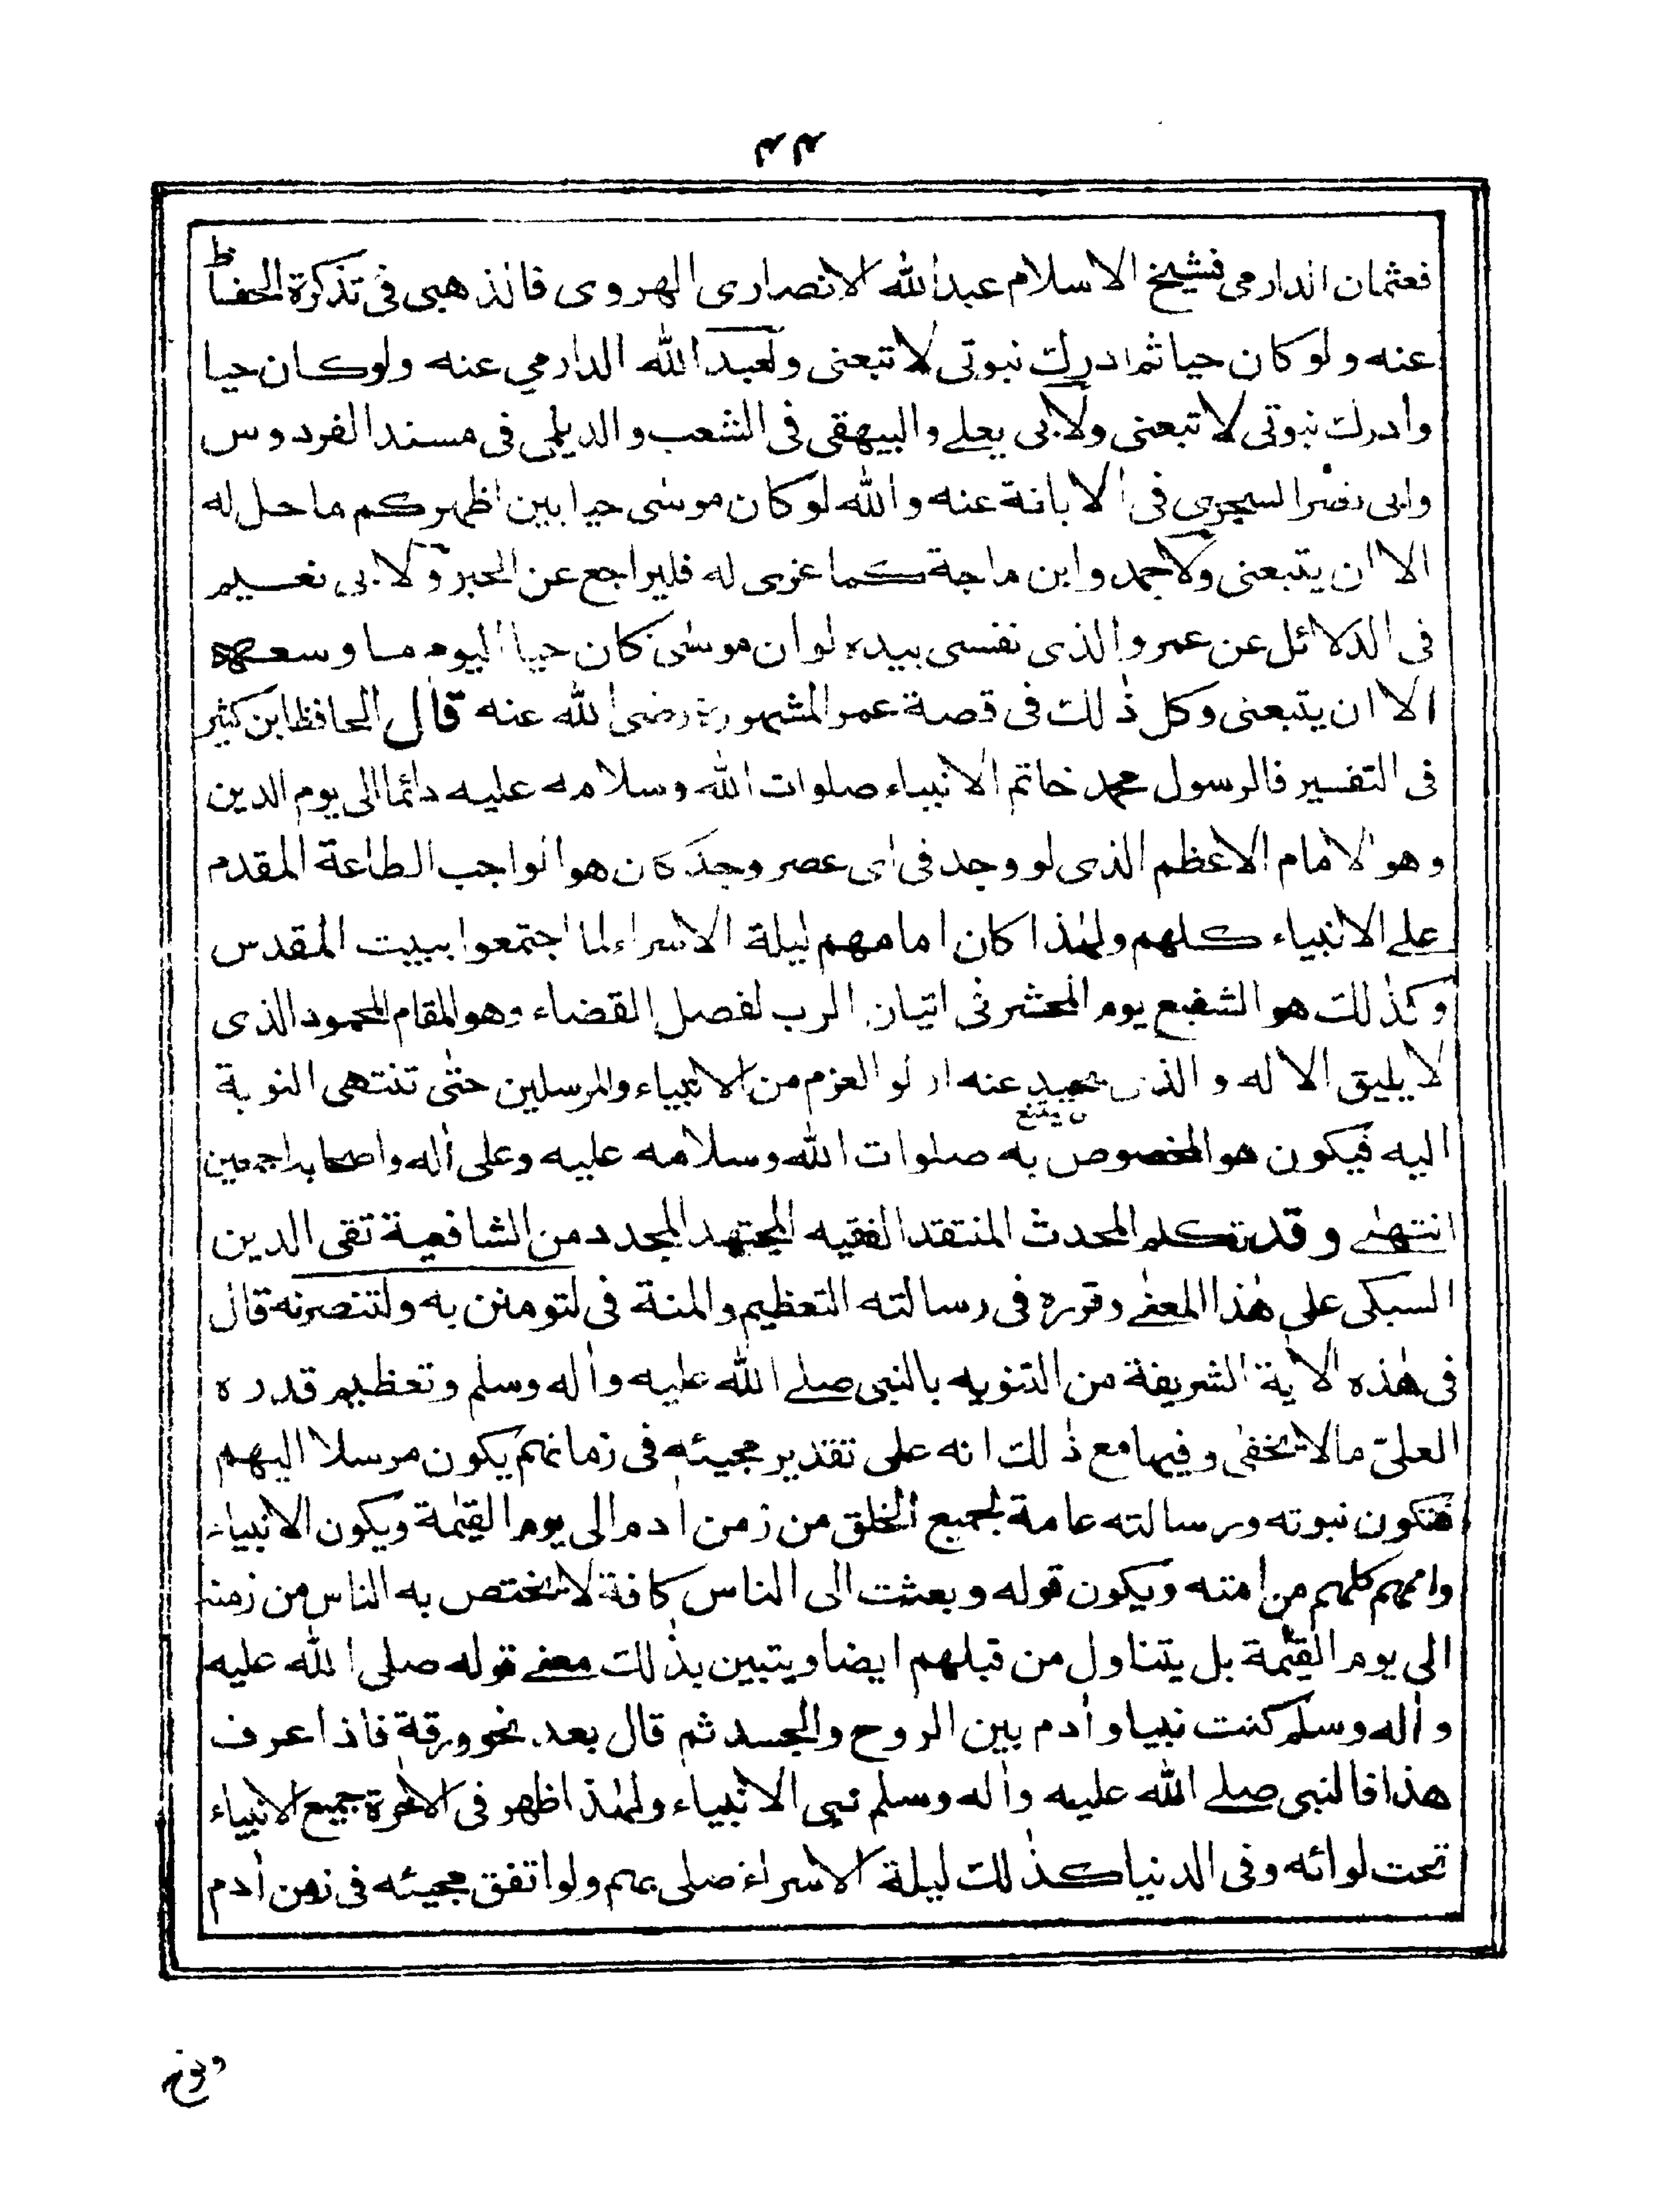 ٢٢
فعثمان الدارمى فشيخ الاسلام عبدالله الانصارى الهروى فالذهبى فى تذكرة الحفاظ
عنه ولو كان حيا ثم ادرك نبوتى لاتبعنى ولعبد الله الدارمي عنه ولوكان حيا
وأدرك نبوتى لاتبعنى ولابى يعلے والبيهقى فى الشعب والديلمى فى مسند الفردوس
وابى نصر السجزي فى الابانة عنه والله لو كان موسٰى حيا بين اظهركم ماحل له
الا ان يتبعنى ولاحمد وابن ماجة كما عزى له فليراجع عن الحبر ولابى نعيم
فى الدلائل عن عمر والذى نفسى بيده لو ان موسٰى كان حيا اليوم ما وسعه
الا ان يتبعنى وكل ذٰلك فى قصة عمر المشهورة رضى الله عنه قال الحافظ ابن كثير
فى التفسير فالرسول محمد خاتم الانبياء صلوات الله وسلامه عليه دائما الى يوم الدين
وهو الامام الاعظم الذى لو وجد فى اى عصر وجد كان هو الواجب الطاعة المقدم
علے الانبياء كلهم ولهٰذا كان امامهم ليلة الاسراء لما اجتمعوا ببيت المقدس
وكذٰلك هو الشفيع يوم المحشر فى اتيان الرب لفصل القضاء وهو المقام المحمود الذى
لا يليق الا له والذى يحيد عنه اولو العزم من الانبياء والمرسلين حتٰى تنتهى النوبة
اليه فيكون هو المخصوص به صلوات الله وسلامه عليه وعلى أله واصحابه اجمعين
انتهٰے وقد تكلم المحدث المنتقد الفقيه المجتهد المجدد من الشافعية تقى الدين
السبكى على هٰذا المعنٰے وقرره فى رسالته التعظيم والمنة فى لتومنن به ولتنصرنه قال
فى هٰذه الأية الشريفة من التنويه بالنبى صلے الله عليه وأله وسلم وتعظيم قدره
العلىّ مالا يخفٰى وفيها مع ذٰلك انه على تقدير مجيئه فى زمانهم يكون مرسلا اليهم
فتكون نبوته ورسالته عامة لجميع الخلق من زمن أدم الى يوم القيٰمة ويكون الانبياء
واممهم كلهم من امته ويكون قوله وبعثت الى الناس كافة لا يختص به الناس من زمنه
الى يوم القيٰمة بل يتناول من قبلهم ايضا ويتبين بذٰلك معنے قوله صلى الله عليه
وأله وسلم كنت نبيا وأدم بين الروح والجسد ثم قال بعد نحو ورقة فاذا عرف
هذا فالنبى صلے الله عليه وأله وسلم نبى الانبياء ولهٰذا ظهر فى الأخرة جميع الانبياء
تحت لوائه وفى الدنيا كذٰلك ليلة الاسراء صلى بهم ولو اتفق مجيئه فى زمن أدم
ونوح